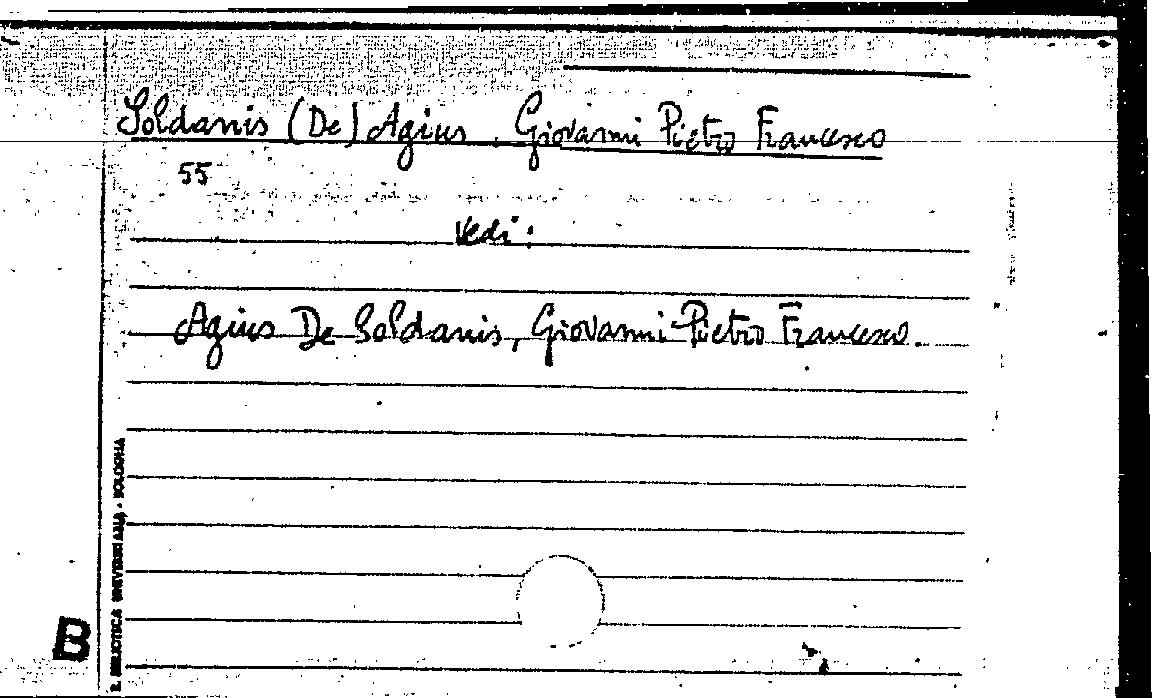 Soldanis (De) Agius, Giovanni Pietro Francesco
55
Vedi:
Agius De Soldanis, Giovanni Pietro Francesco.
R. BIBLIOTECA UNIVERSITARIA - BOLOGNA
B